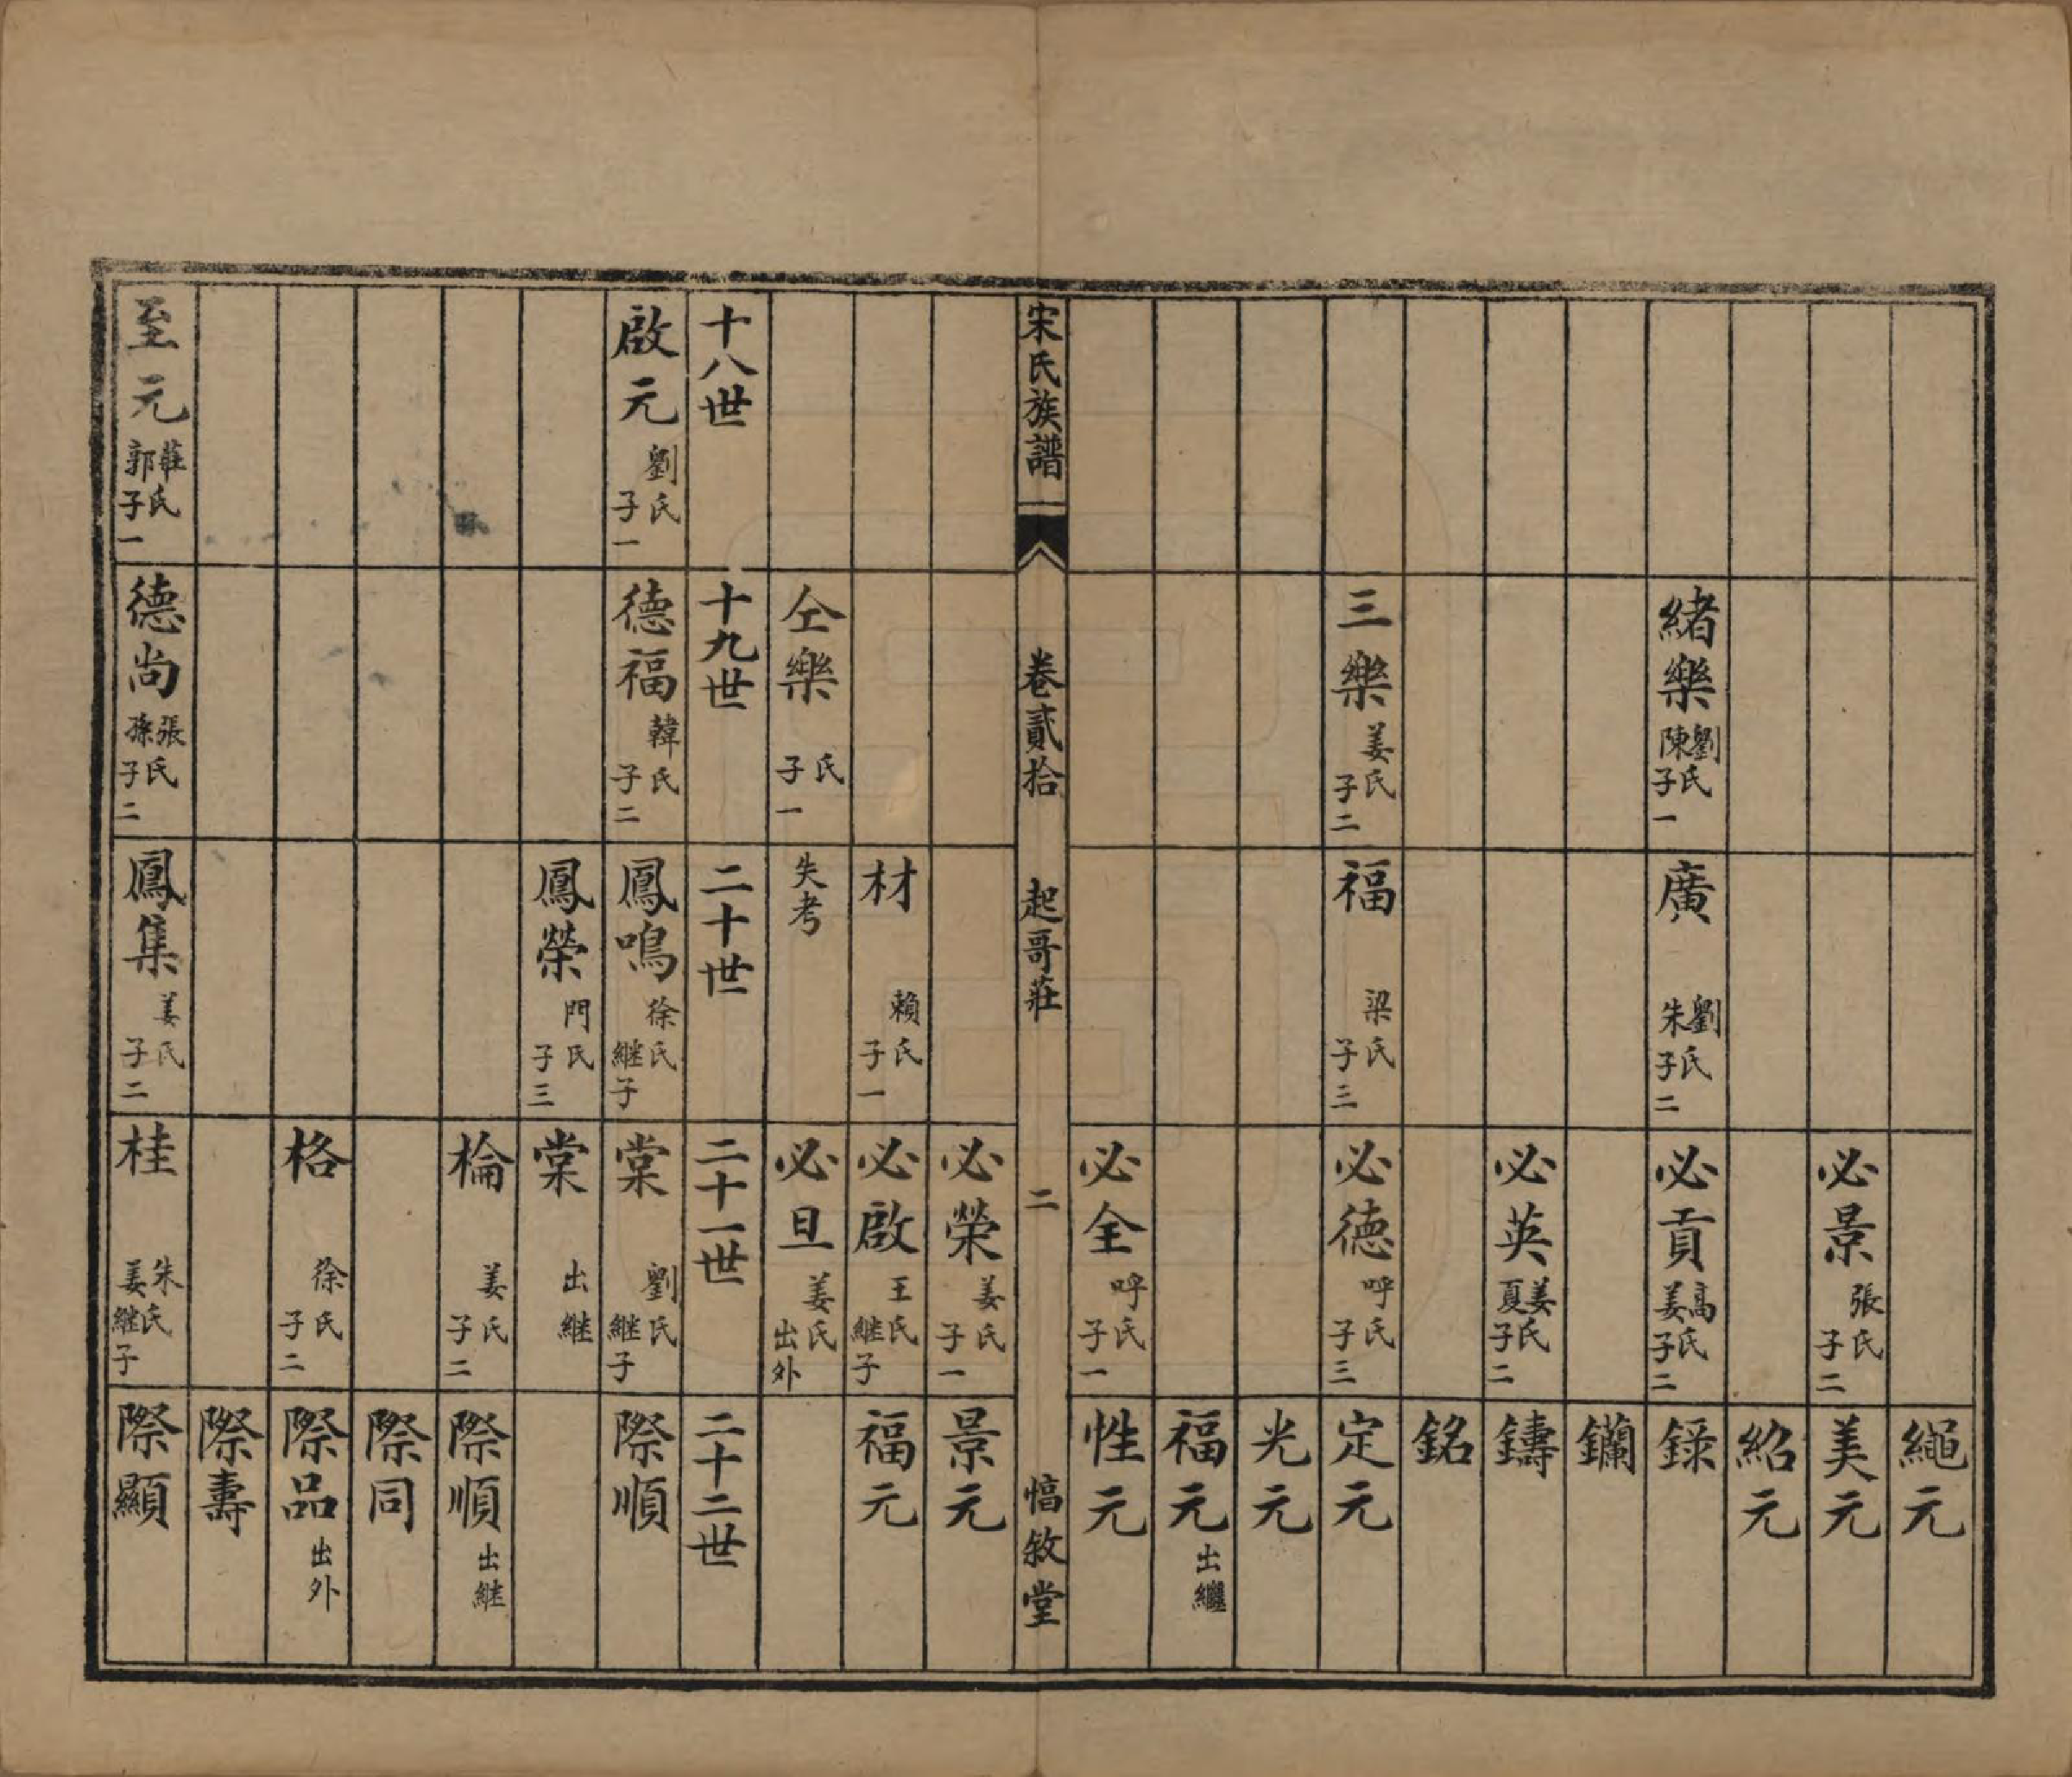 繩元
必景 張氏 子二
美元
紹元
緒樂 劉陳氏 子一
廣 劉朱氏 子二
必貢 高姜氏 子二
錄
鑭
必英 姜夏氏 子二
鑄
銘
三樂 姜氏 子二
福 梁氏 子三
必德 呼氏 子三
定元
光元
福元 出繼
必全 呼氏 子一
性元
宋氏族譜 卷貳拾 起哥莊 二 惇敘堂
必榮 姜氏 子一
景元
材 賴氏 子一
必啟 王氏 継子
福元
仝樂 氏 子一
失考
必旦 姜氏 出外
十八世 十九世 二十世 二十一世 二十二世
啟元 劉氏 子一
德福 韓氏 子二
鳳鳴 徐氏 継子
棠 劉氏 継子
際順
鳳榮 門氏 子三
棠 出継
棆 姜氏 子二
際順 出継
際同
格 徐氏 子二
際品 出外
際壽
至元 莊郭氏 子一
德尚 張孫氏 子二
鳳集 姜氏 子二
桂 朱姜氏 継子
際顯